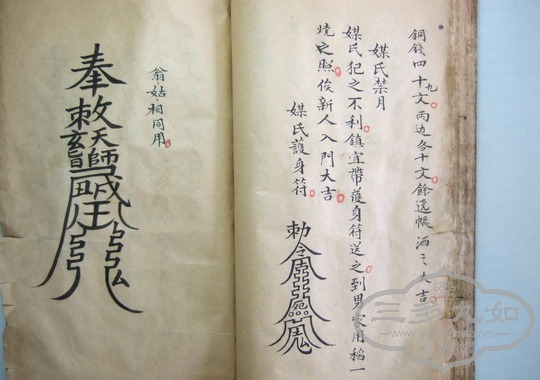 銅錢四十九文兩边各十文餘帳洒〻大吉
媒氏禁月
媒氏犯之不利鎮宜帶護身符送之到男家用稻一
燒之照俟新人入門大吉
媒氏護身符
勅令
翁姑相同用
奉敕
天師
三多九如